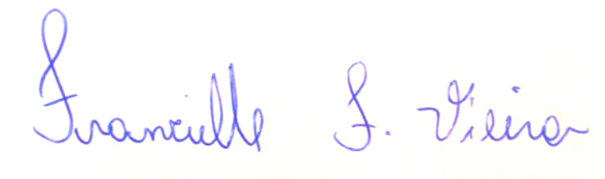 Francielle F. Vieira